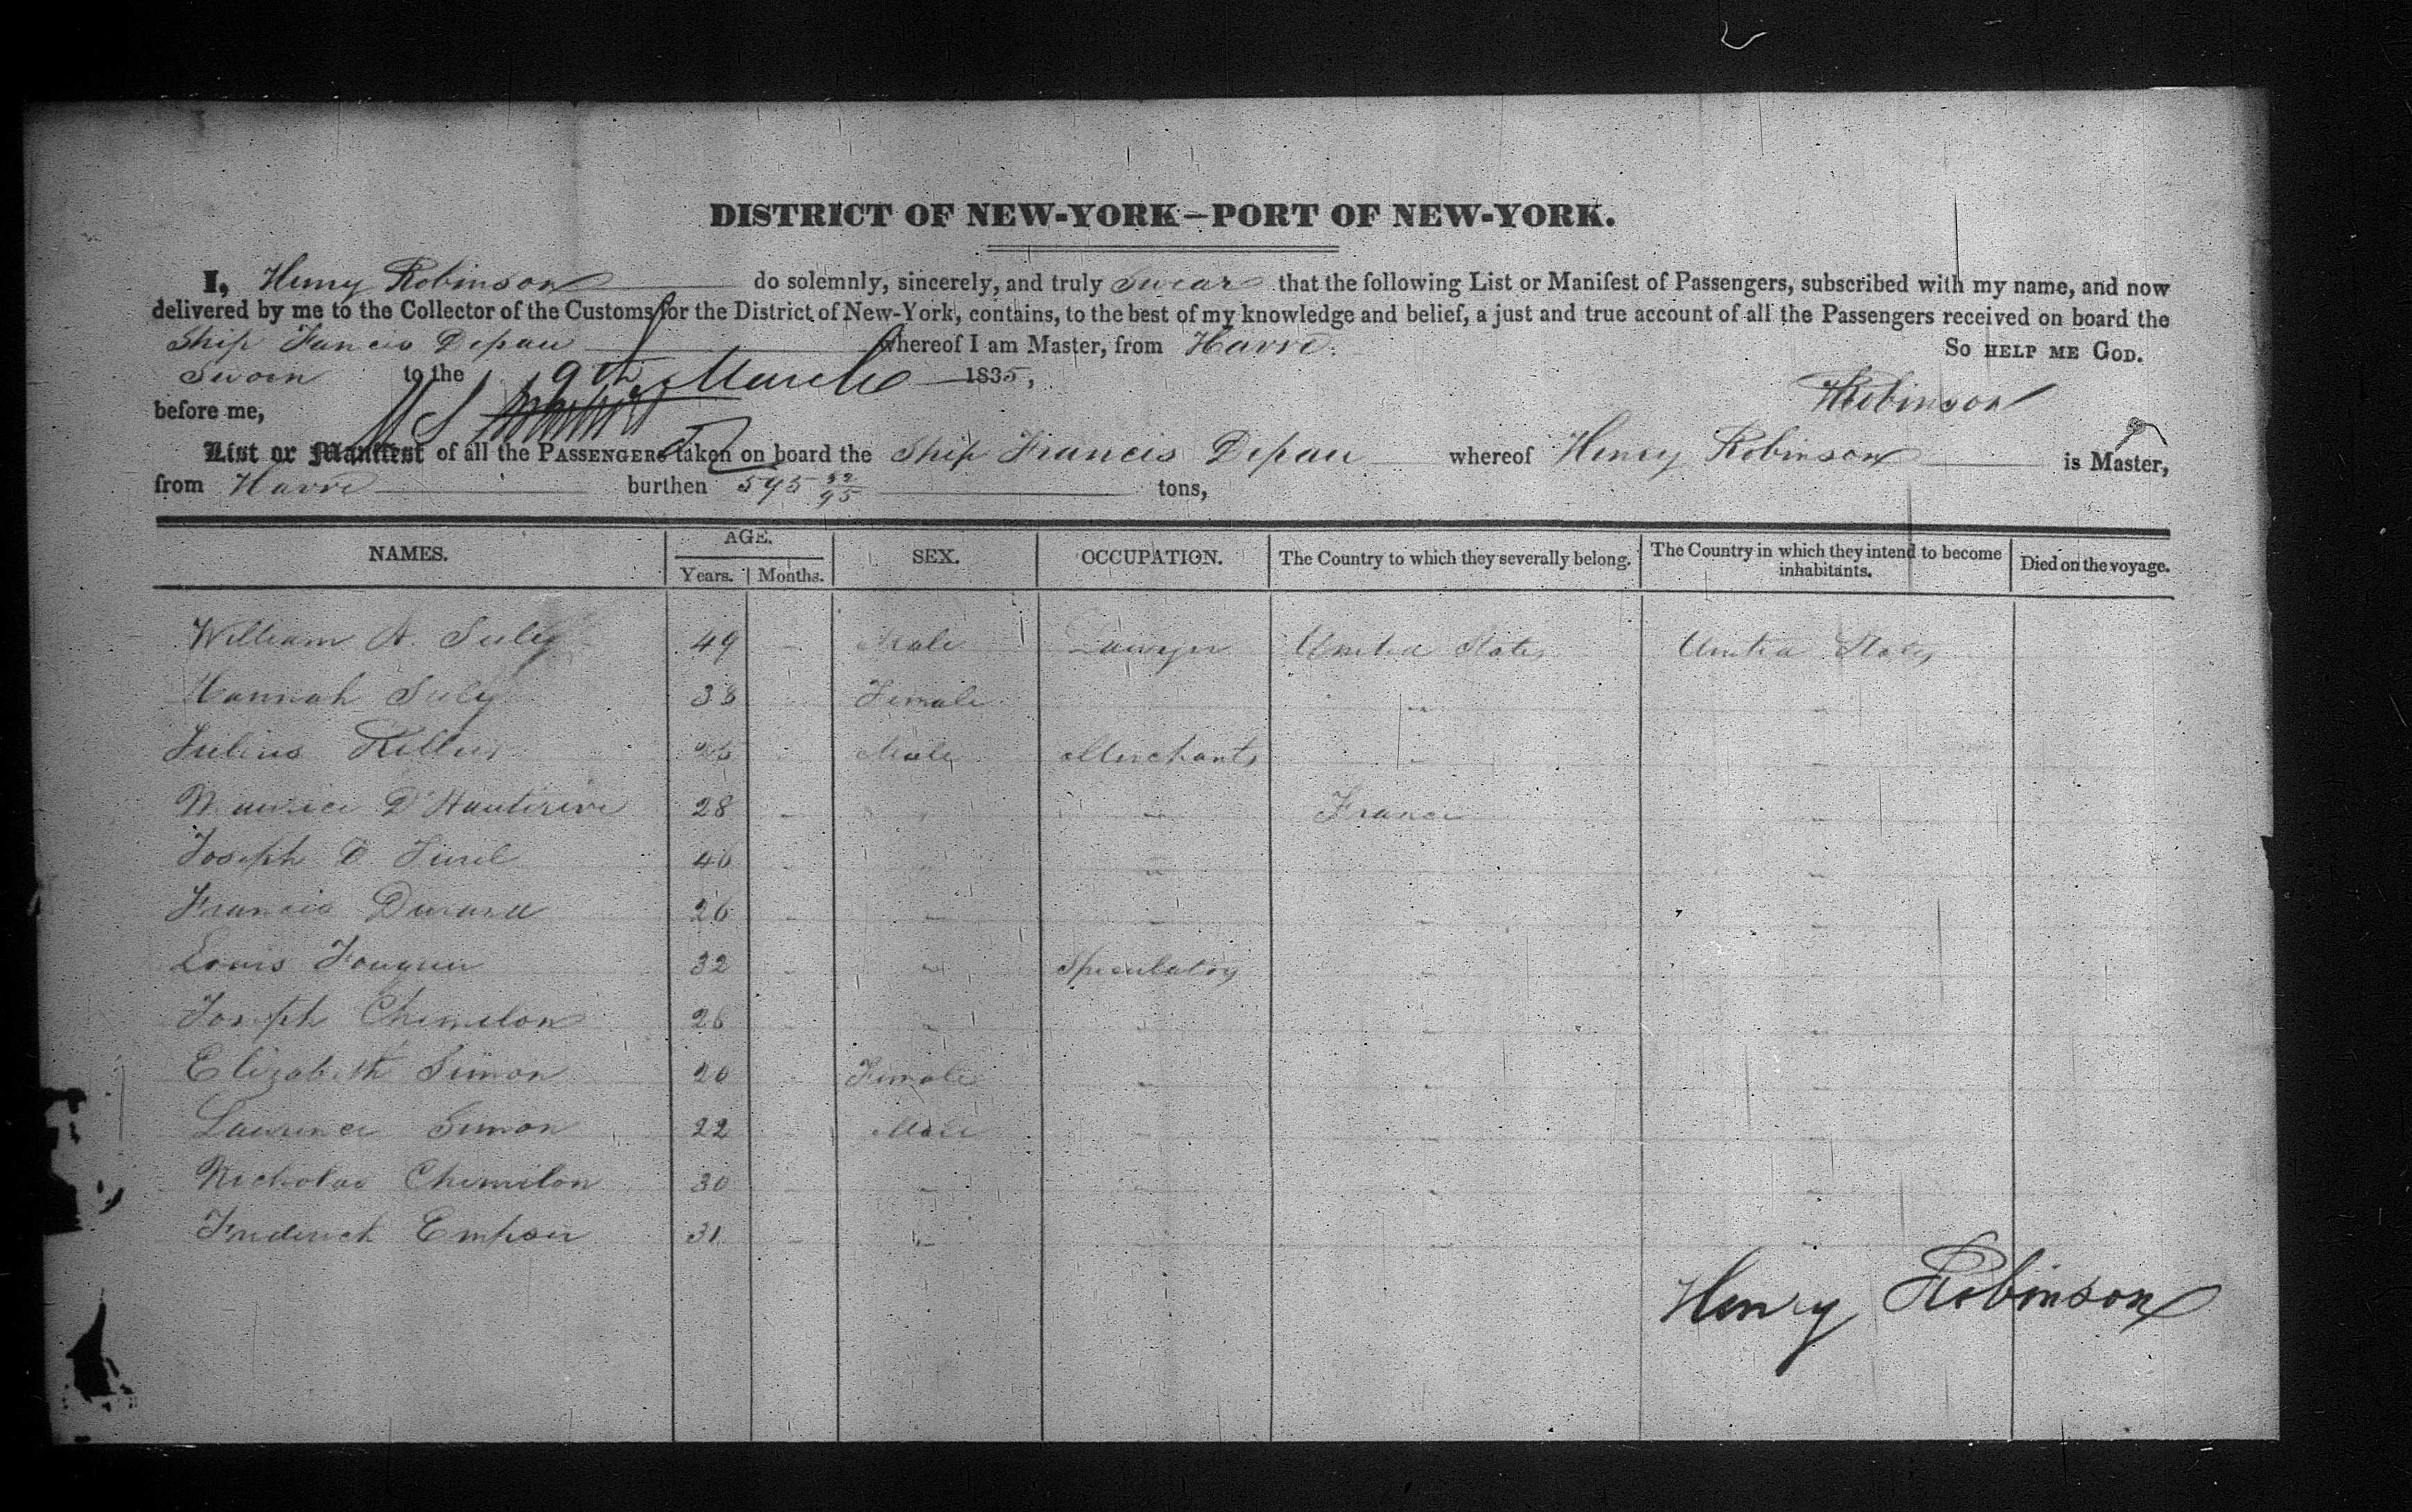 DISTRICT OF NEW-YORK—PORT OF NEW-YORK.
I, Henry Robinson do solemnly, sincerely, and truly swear that the following List or Manifest of Passengers, subscribed with my name, and now
delivered by me to the Collector of the Customs for the District of New-York, contains, to the best of my knowledge and belief, a just and true account of all the Passengers received on board the
Ship Francis Depau whereof I am Master, from Havre. So HELP ME GOD.
Sworn to the 9th March 1835,
HRobinson
before me,
List or Manifest of all the PASSENGERS taken on board the Ship Francis Depau whereof Henry Robinson is Master,
from Havre burthen 595 52/95 tons,
NAMES. AGE. Years. Months. SEX. OCCUPATION. The Country to which they severally belong. The Country in which they intend to become inhabitants. Died on the voyage.
William A. Suly 49 - Male Lawyer United States United States
Hannah Suly 38 - Female " "
Julius 25 - Male Merchants " "
Maurice D'Hauterive 28 - " " France "
Joseph D. 46 - " " " "
Francis Durand 26 - " " " "
Louis Fouquier 32 - " Speculators " "
Joseph Chimilon 26 - " " " "
Elizabeth Simon 20 - Female " " "
Laurence Simon 22 - Male " " "
Nicholas Chimilon 30 - " " " "
Frederick 31 - " " " "
Henry Robinson